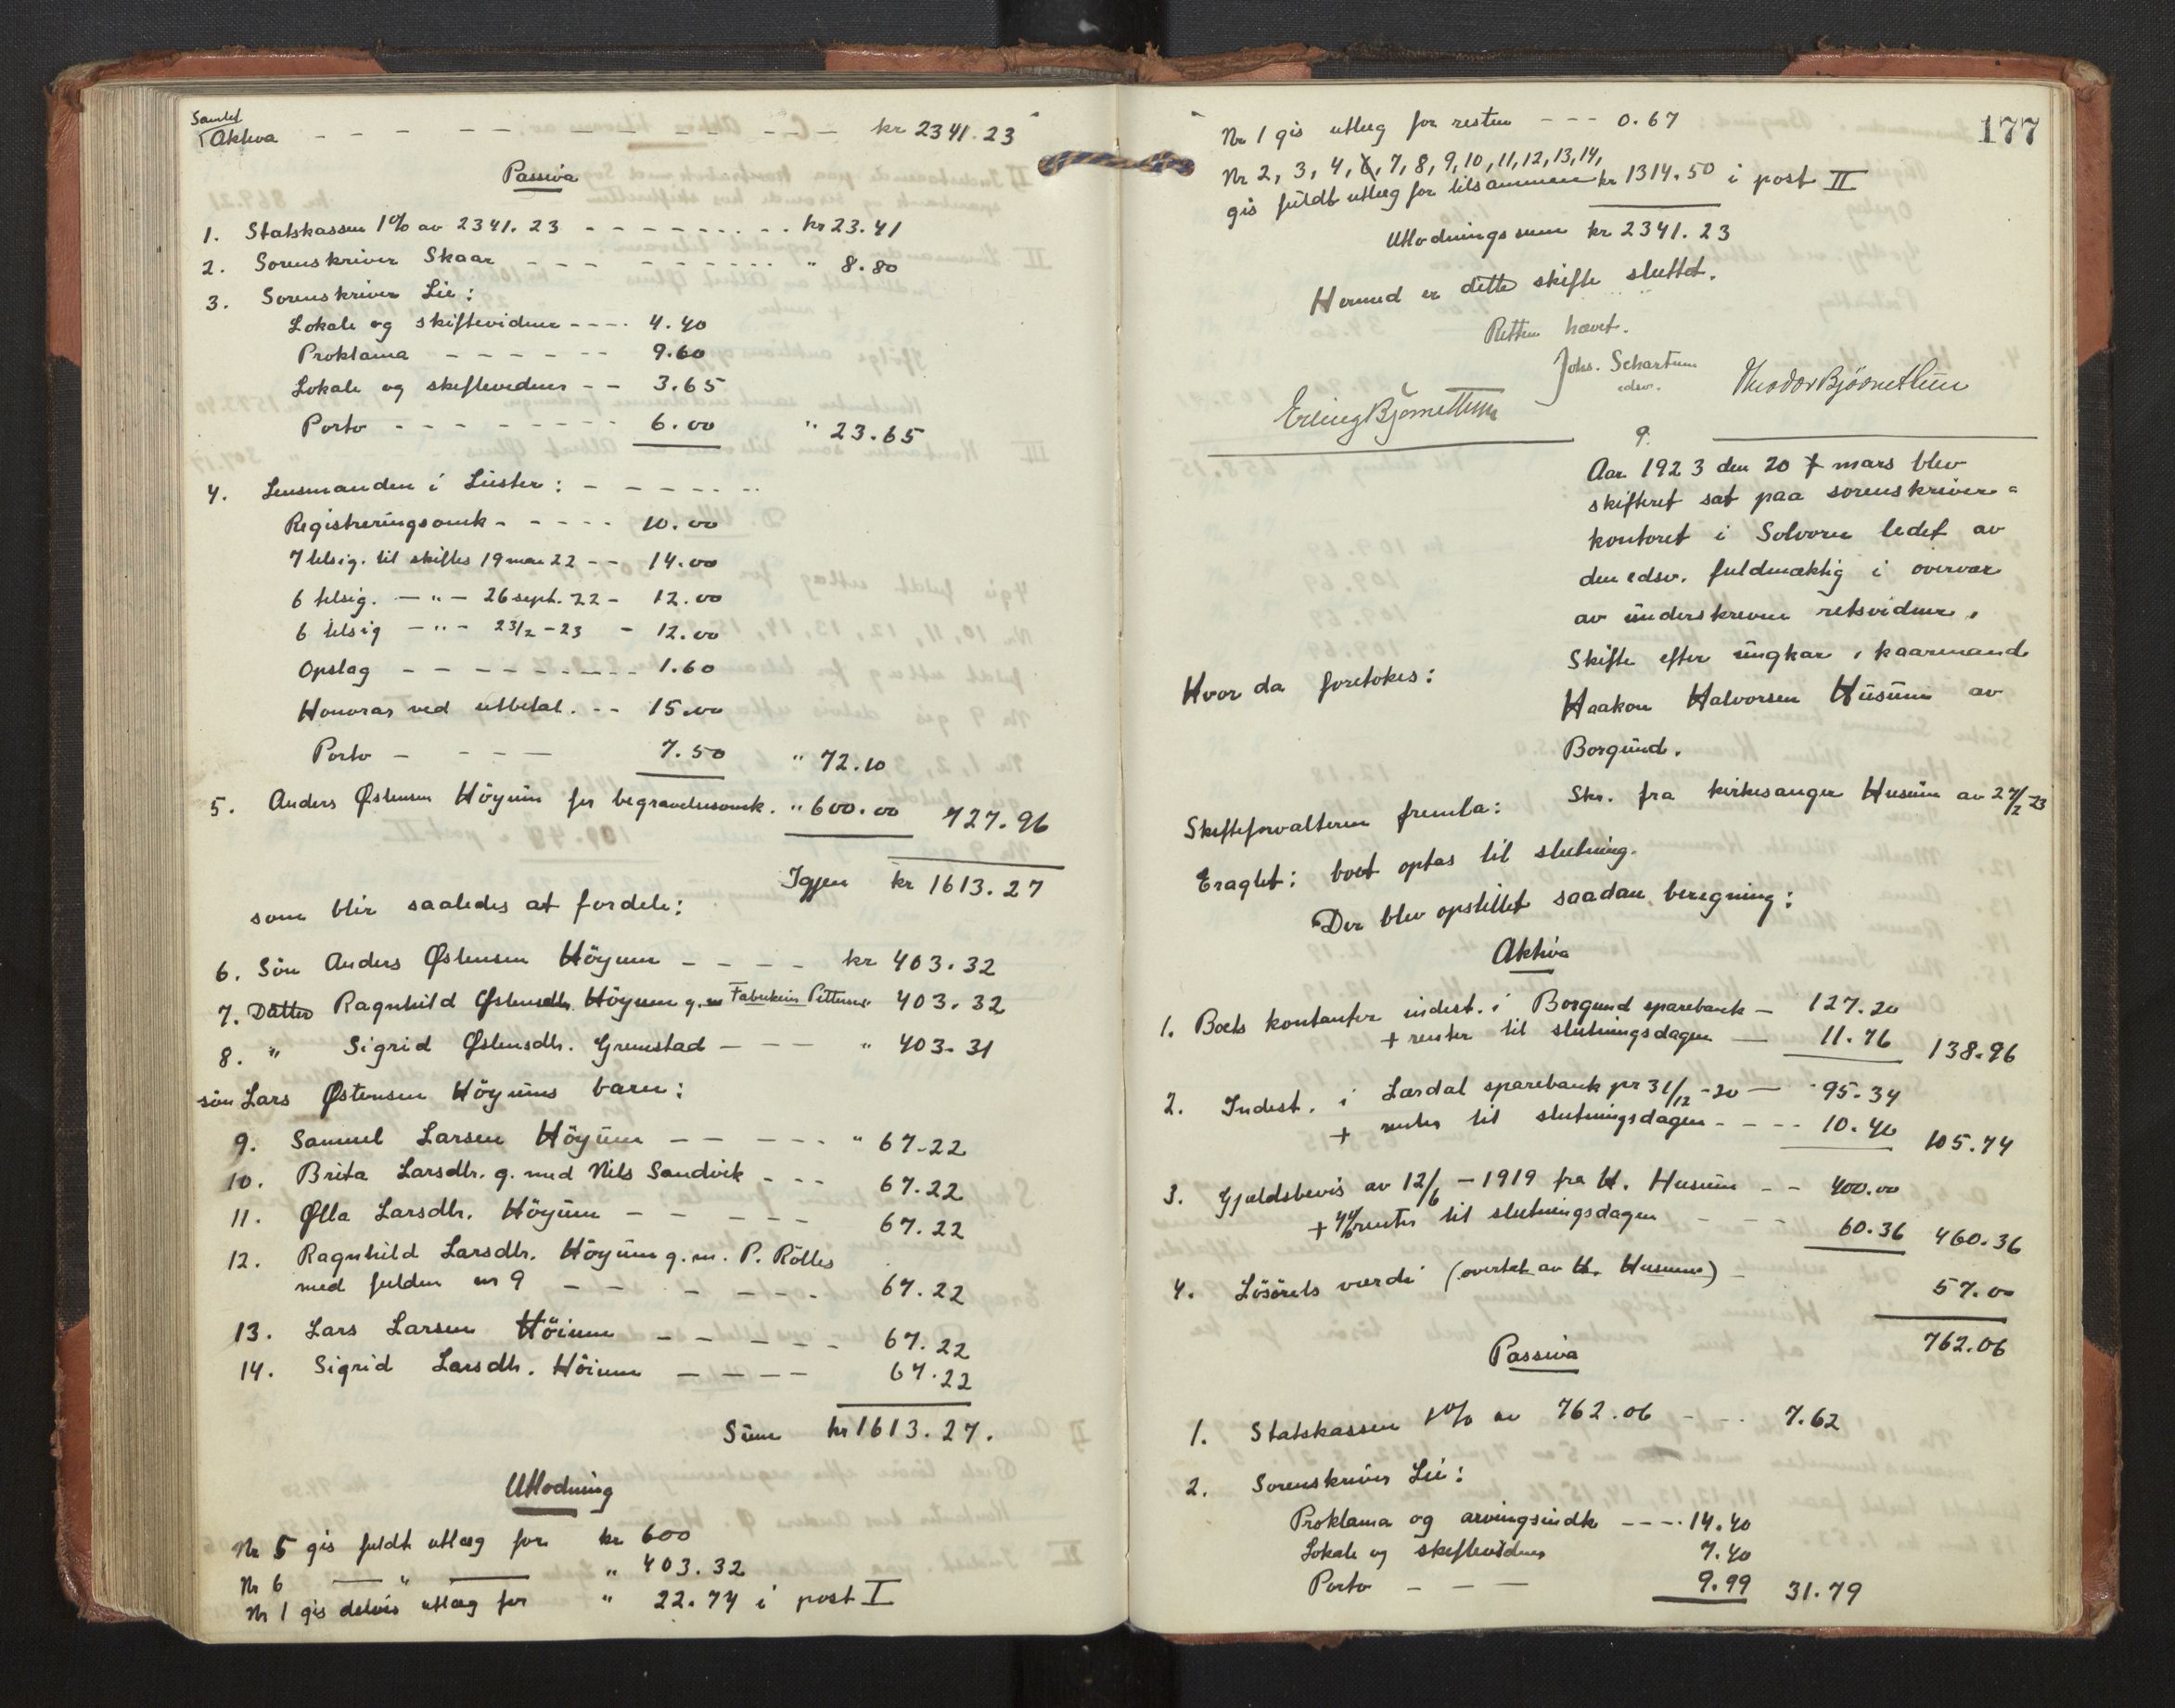 Samlet
Aktiva - - - - - - - - - - - kr 2341.23
Passiva
1. Statskassen 1% av 2341.23 - - - - - - - - kr 23.41
2. Sorenskriver Skaar - - - - - - - - - " 8.80
3. Sorenskriver Lie:
Lokale og skiftevidner - - - - 4.40
Proklama - - - - - - 9.60
Lokale og skiftevidner - - 3.65
Porto - - - - - - - - - 6.00 " 23.65
4. Lensmanden i Luster: - - - - - -
Registreringsomk - - - - - 10.00
7 tilsig. til skiftes 19 mai 22 - - 14.00
6 tilsig. - " - 26 sept. 22 - 12.00
6 tilsig - " - 23/2 - 23 - 12.00
Opslag - - - - - - - - - 1.60
Honorar ved utbetal. - - 15.00
Porto - - - - 7.50 " 72.10
5. Anders Østensen Höyum for begravelsesomk. " 600.00 727.96
Igjen kr 1613.27
som blir saaledes at fordele:
6. Sön Anders Østensen Höyum - - - - kr 403.32
7. Datter Ragnhild Østensdtr. Höyum g. m Fabrikeier Petterson 403.32
8. " Sigrid Østensdtr. Grumstad - - - " 403.31
sön Lars Østensen Höyums barn:
9. Samuel Larsen Höyum - - - - - " 67.22
10. Brita Larsdtr. g. med Nils Sandvik - - - 67.22
11. Ølla Larsdtr. Höyum - - - - - 67.22
12. Ragnhild Larsdtr. Höyum g. m. P. Rölles
med fulden nr 9 - - - - - - 67.22
13. Lars Larsen Höium - - - - - - 67.22
14. Sigrid Larsdtr. Höium - - - - 67.22
Sum kr 1613.27.
Utlodning
Nr 5 gis fuldt utlæg for kr 600
Nr 6 — " — " 403.32
Nr 1 gis delvis utlæg for " 22.74 i post I
177
Nr 1 gis utlæg for resten - - - 0.67
Nr 2, 3, 4, 6, 7, 8, 9, 10, 11, 12, 13, 14,
gis fuldt utlæg for tilsammen kr 1314.50 i post II
Utlodningssum kr 2341.23
Hermed er dette skifte sluttet.
Retten hævet.
Johs. Schartum
edsv.
Erling Bjørnethun
Theodor Bjørnethun
9.
Aar 1923 den 20 mars blev
skifteret sat paa sorenskriver=
kontoret i Solvorn ledet av
den edsv. fuldmæktig i overvær
av underskrevne retsvidner.
Hvor da foretokes:
Skifte efter ungkar, kaarmand
Haakon Halvorsen Husum av
Borgund.
Skifteforvalteren fremla: Skr. fra kirkesanger Husum av 27/2-23
Eragtet: boet optas til slutning.
Der blev opstillet saadan beregning:
Aktiva
1. Boets kontanter indest. i Borgund sparebank - 127.20
+ renter til slutningsdagen — 11.76 138.96
2. Indest. i Lærdal sparebank pr 31/12 - 20 — 95.34
+ renter til slutningsdagen - - - - 10.40 105.74
3. Gjældsbevis av 12/6 - 1919 fra H. Husum - - 400.00
+ 4% renter til slutningsdagen - - - 60.36 460.36
4. Lösörets værdi (overtat av H. Husum) - 57.00
762.06
Passiva
1. Statskassen 1% av 762.06 - - - 7.62
2. Sorenskriver Lie:
Proklama og arvingsindk - - - - 14.40
Lokale og skiftevidner 7.40
Porto - - - 9.99 31.79